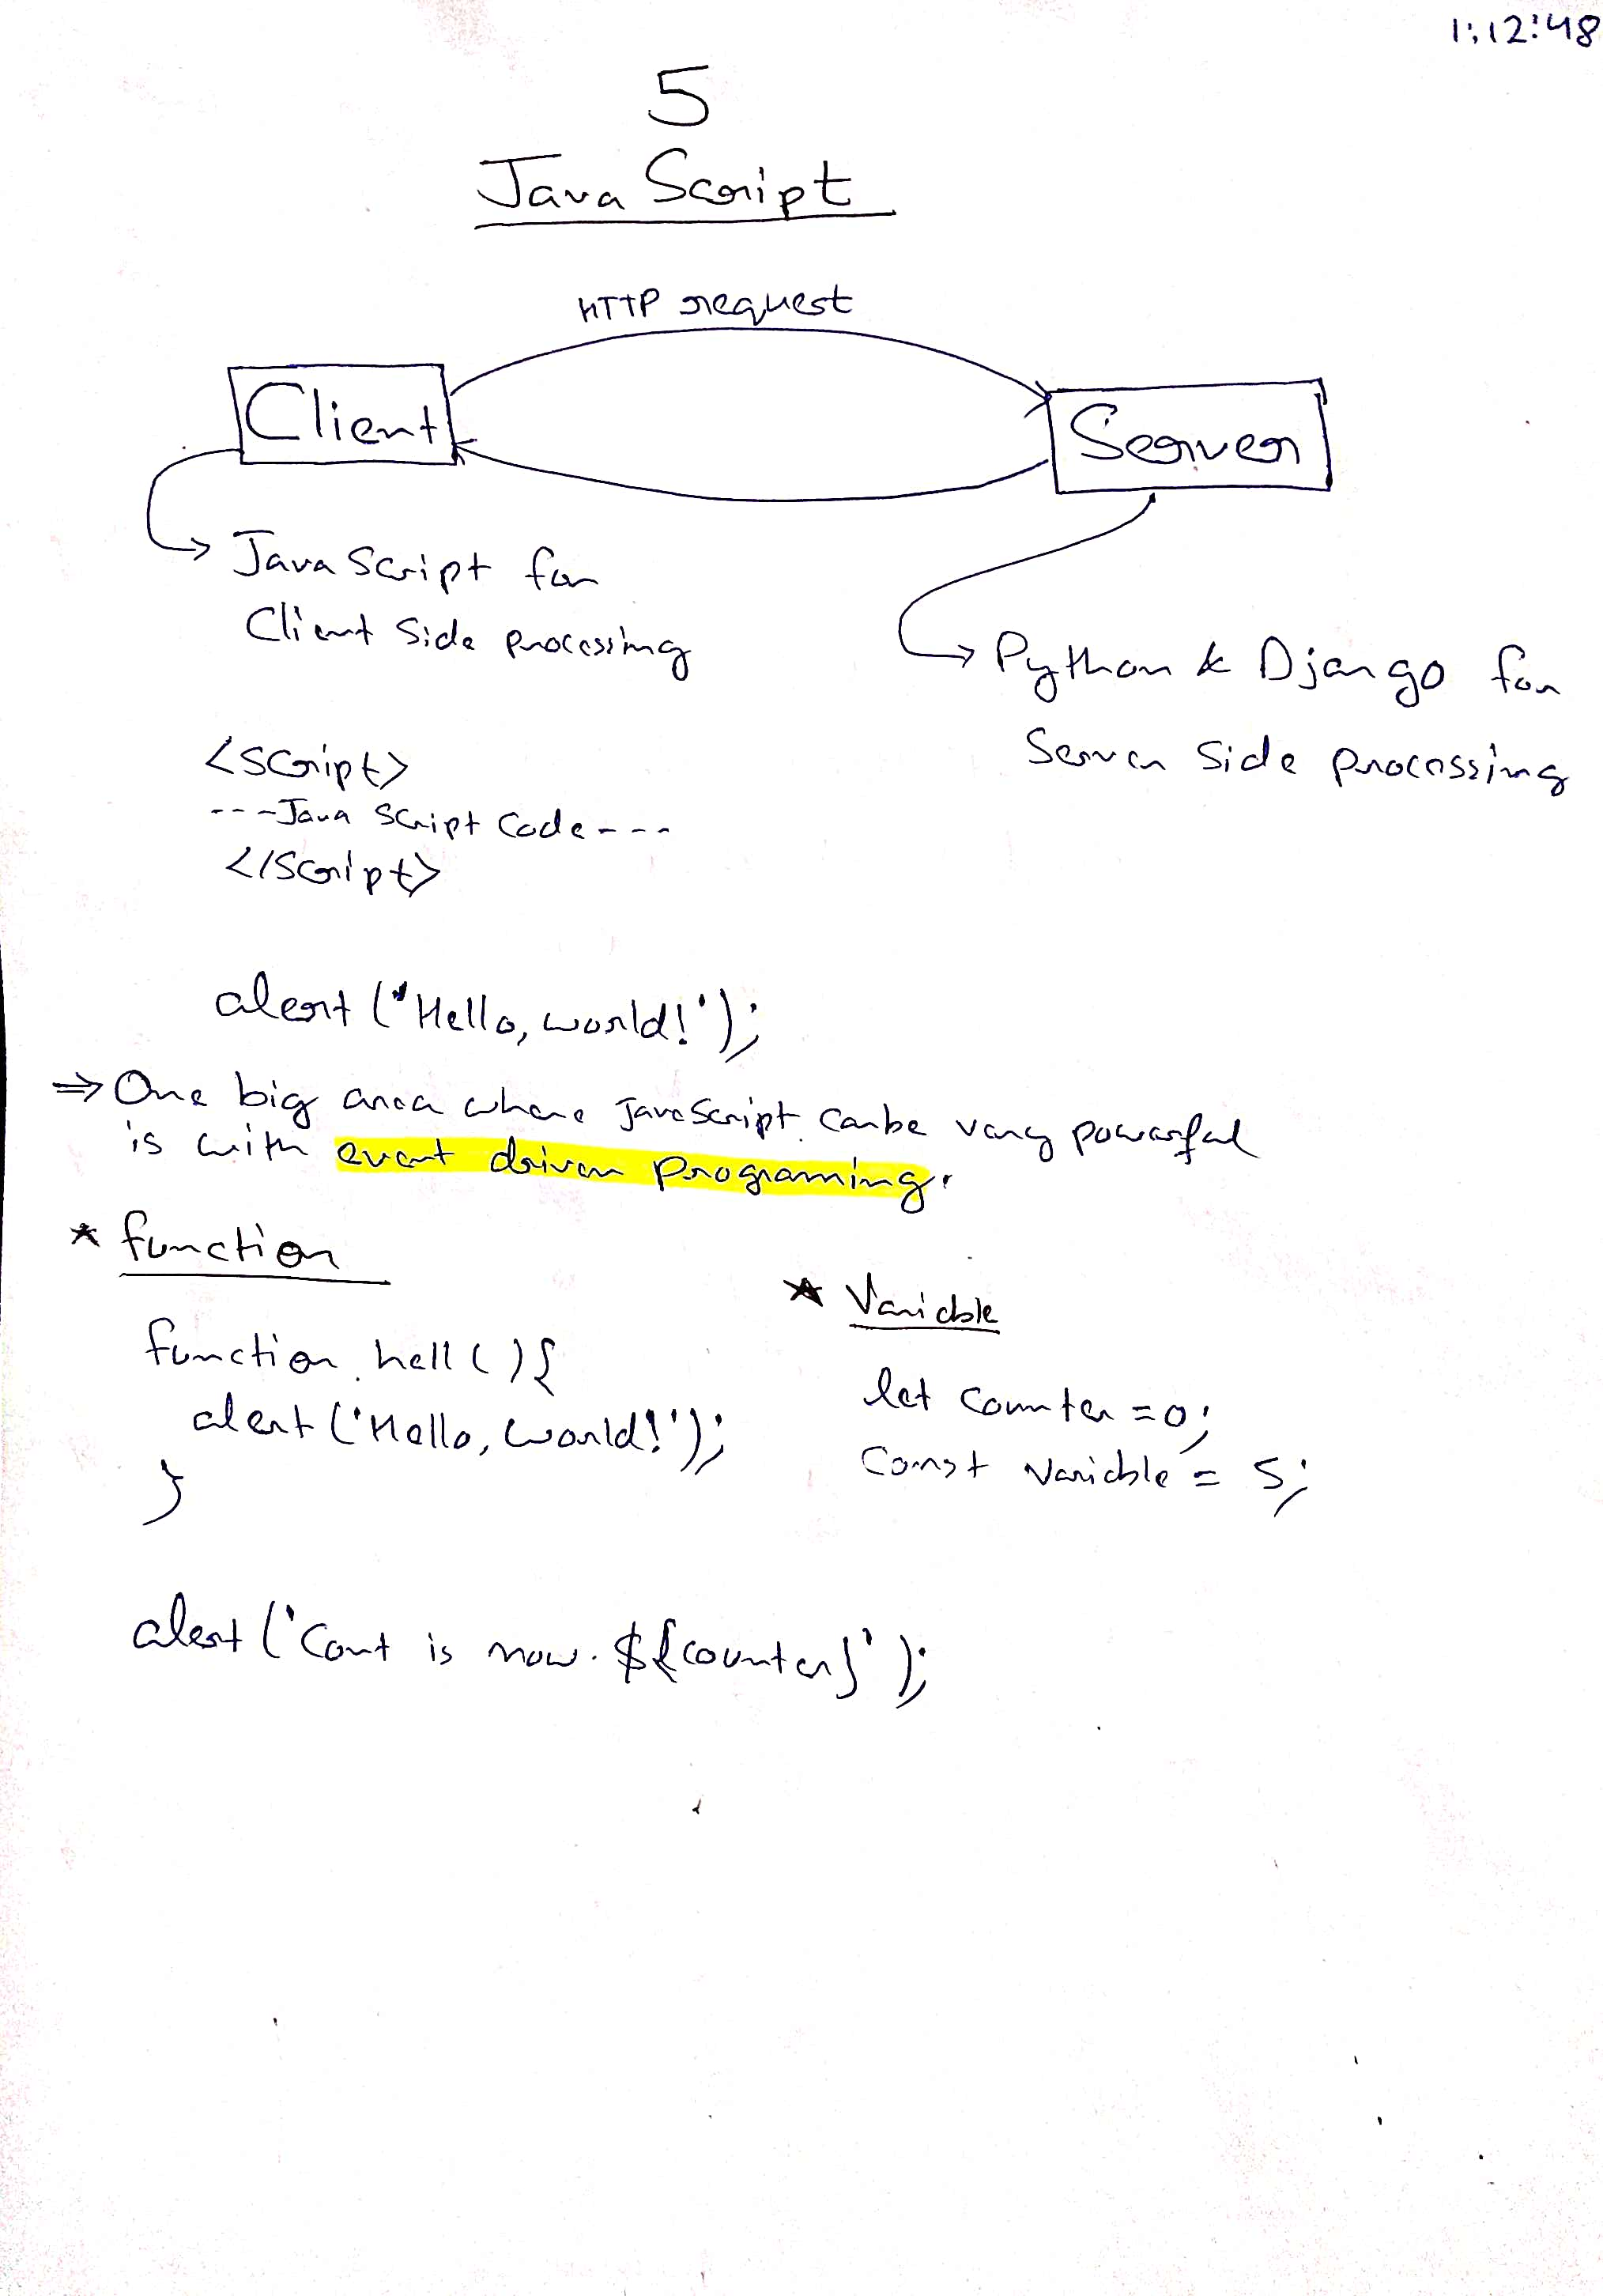 1:12:48
5
Java Script
HTTP request
Client
Server
Java Script for
Client Side processing
Python & Django for
Server Side processing
<script>
---Java Script Code---
</script>
alert('Hello, world!');
⇒ One big area where JavaScript can be very powerful
is with event driven programing.
* function
function hell(){
alert('Hello, world!');
}
* Variable
let counter = 0;
const variable = 5;
alert('Cont is now. ${counter}');